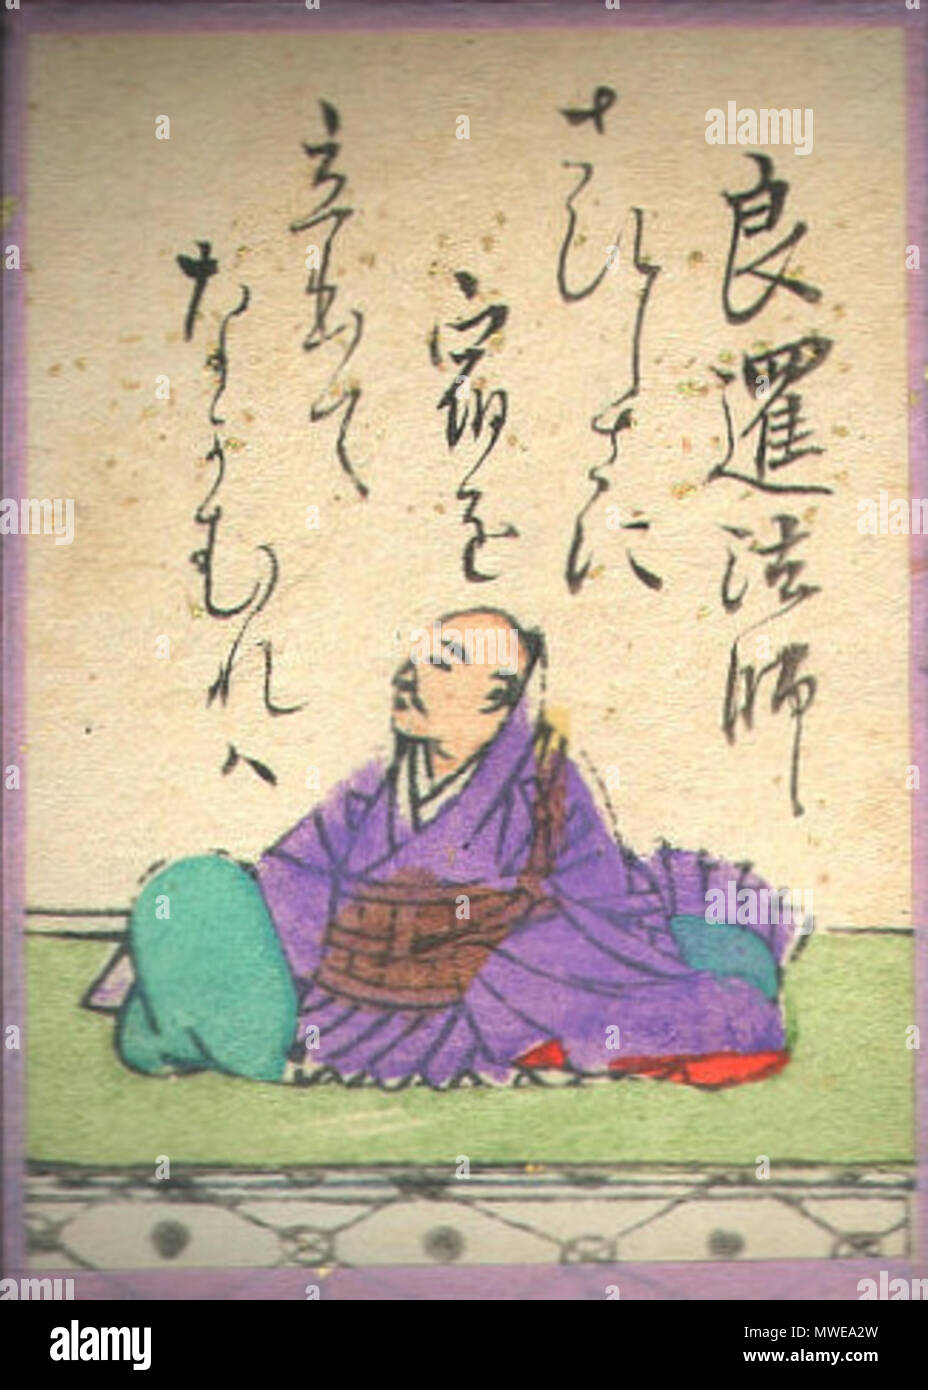 良暹法師
さひしさに
宿を
立出て
なかむれハ
alamy
Image ID: MWEA2W
www.alamy.com